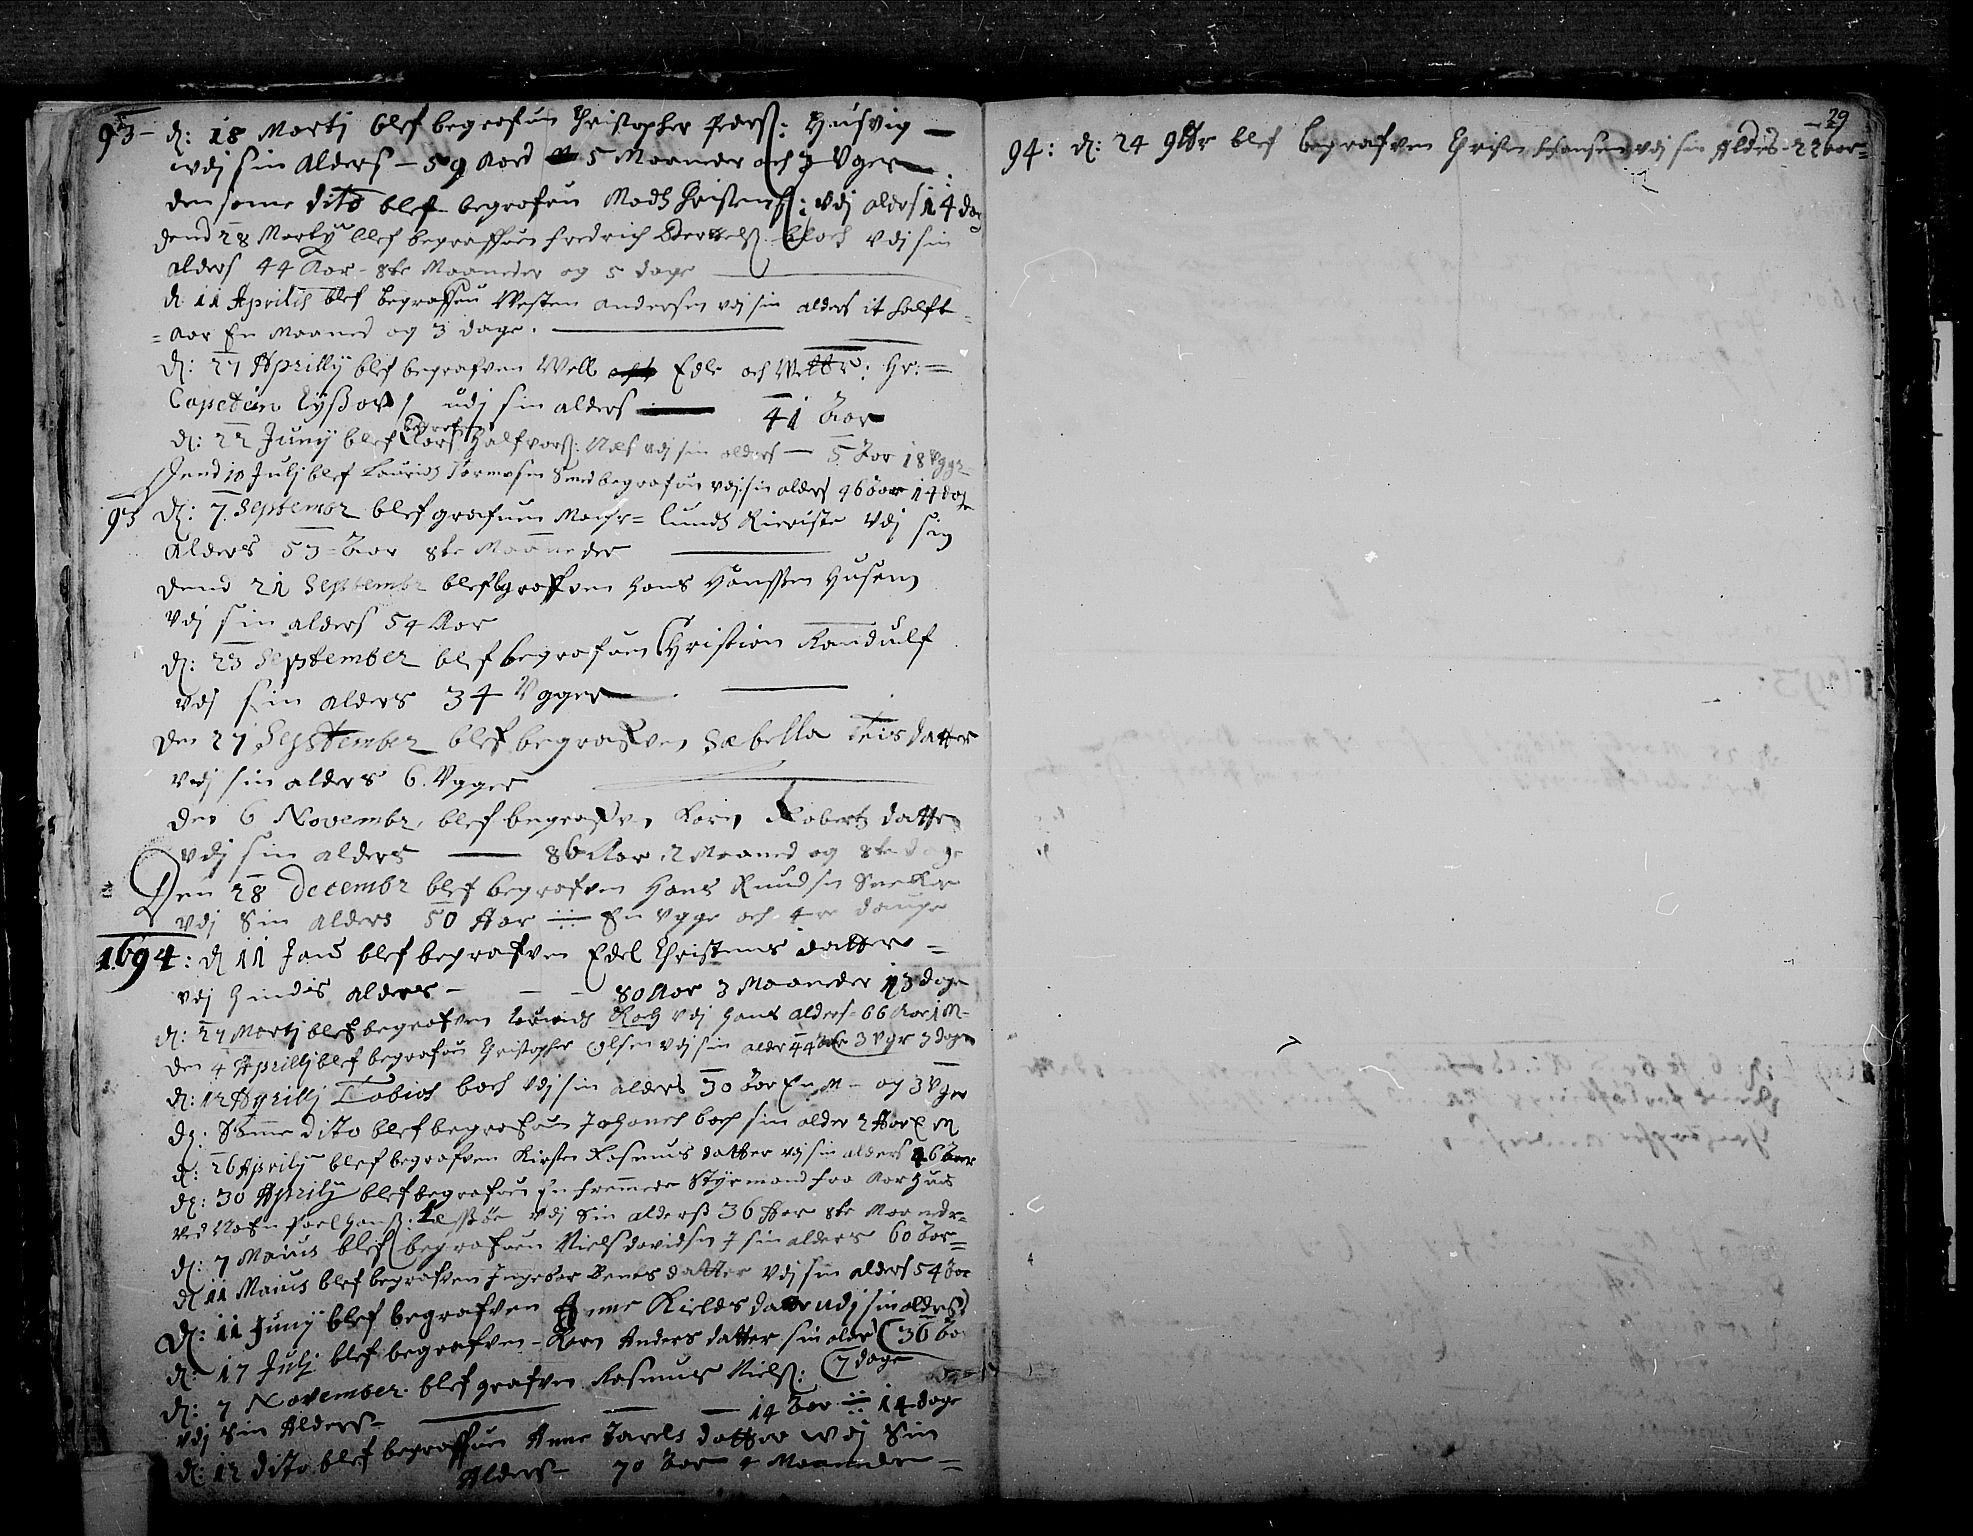 93 - d: 18 Martj blef begrafuen Christopher Pederß: Husvig —
wdj sin Alders - 59 Aard 5 Maaneder och 3 Vger
den same dito blef begrafuen Madz Christenß: Vdj alders 14 dag
dend 28 Marty blef begraffuen fredrich Bertelß. bloch Vdj sin
alders 44 Aar - 8te Maaneder og 5 dage
d: 11 Aprilis blef begraffuen Westen andersen vdj sin alders it halft=
= aar En Maaned og 3 dage.
d: 27 Aprilly blef begrafven Well Edle och Hr: =
Capetein udj sin alders 41 Aar
d: 22 Junij blef begrafuen Lars Halfvorß: Næs vdj sin alders — 5 Aar 18 Vgger
Dend 10 Julj blef Laurids Tormosen Smed begrafuen vdj sin alders 46 aar 14 dage
93 d: 7. Septembr blef grafuen = lundz Vdj sin
Alders 53 = Aar 8te Maaneder
Dend 21 Septembr blef bgraffven Hans Hanssen Husem
Vdj sin alders 54 Aar
d: 23 September blef begrafuen Christian Randulf
vdj sin alders 34 Vgger
Den 27 September blef begrafven Sæbella Teis datter
Vdj sin alders 6. Vgger
Den 6 Novembr, blef begrafven Karn Roberts datter
vdj sin alders — 86 Aar 2 Maaned og 8te dage
Den 28 Decembr blef begrafven Hans Knudsn Sneker
vdj Sin alders 50 Aar En Vgge och 4re dauge
1694: d 11 Jan blef begrafven Edel Christens datter =
vdj Hindis alders - - - 80 Aar 3 Maaneder 13 dage
d: 27 Martj blef begrafven Lauridz Koch Vdj Hans alders = 66 Aar 1 M-
Den 4 Aprillj blef begrafuen Christopher Olsen vdj sin alder 44 aar 3 Vgr 3 dage
d: 12 Aprillj Tobias boch vdj sin alders 30 Aar En M - og 3 Vger
d: Samme dito blef begrafuen Johanes boch sin alder 2 Aar E M
d: 26 Aprily blef begrafven Kirsten Rasmus datter vdj sin alders 46 Aar
d: 30 Aprily blef begrafuen En fremmede Styrmand fra Aarhuus
Ved Nafn Poel Hanß: Leßøe vdj Sin alderß 36 Aar 8te Maanedr=
d: 7 Maius blef begrafuen Niels davidsn J sin alders 60 Aar =
d 11 Maius blef begrafven Ingebor Bents datter Vdj sin alders 54 Aar
d: 11 Junij blef begrafven Anne Kields datter udj sin alders
d: 17 Julj blef begrafven - Karn Anders datter sin alder (36 Aar
d: 7 November. blef grafven Rasmus Nielß: (7 dage
vdj Sin Alders - 14 Aar 14 dage
d: 12 dito blef begraffuen Anne Jarels datter wdj Sin
Alders - 70 Aar 4 Maaneder =
29
94: d: 24 9br blef begrafven Christen Hansen vdj sin Alders - 22 aar =